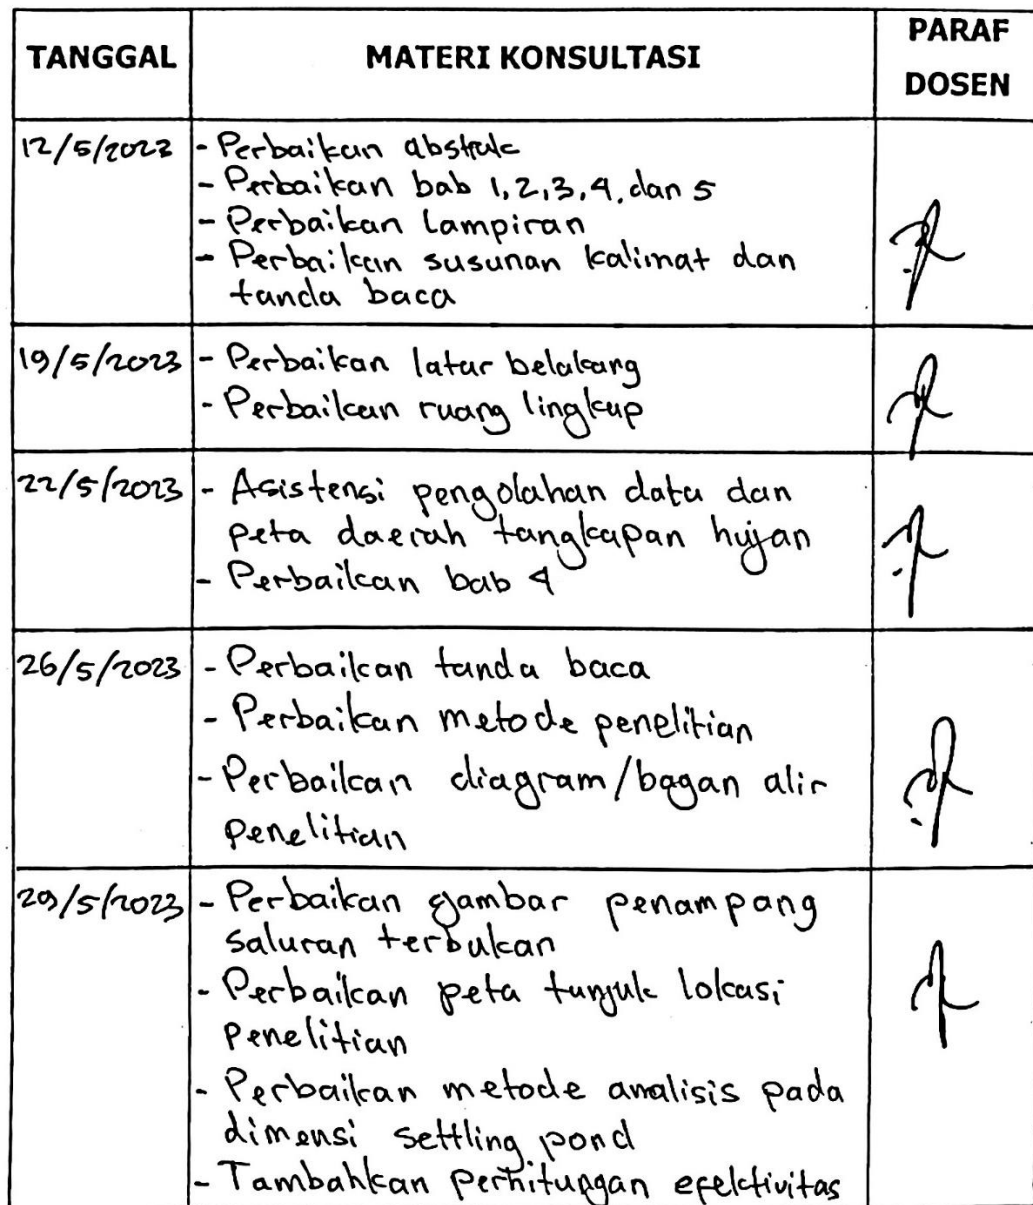 TANGGAL MATERI KONSULTASI PARAF DOSEN
12/5/2023 - Perbaikan abstrak
- Perbaikan bab 1, 2, 3, 4, dan 5
- Perbaikan Lampiran
- Perbaikan susunan kalimat dan
tanda baca
19/5/2023 - Perbaikan latar belakang
- Perbaikan ruang lingkup
22/5/2023 - Asistensi pengolahan data dan
peta daerah tangkapan hujan
- Perbaikan bab 4
26/5/2023 - Perbaikan tanda baca
- Perbaikan metode penelitian
- Perbaikan diagram/bagan alir
penelitian
29/5/2023 - Perbaikan gambar penampang
saluran terbukan
- Perbaikan peta tunjuk lokasi
penelitian
- Perbaikan metode analisis pada
dimensi settling pond
- Tambahkan perhitungan efektivitas